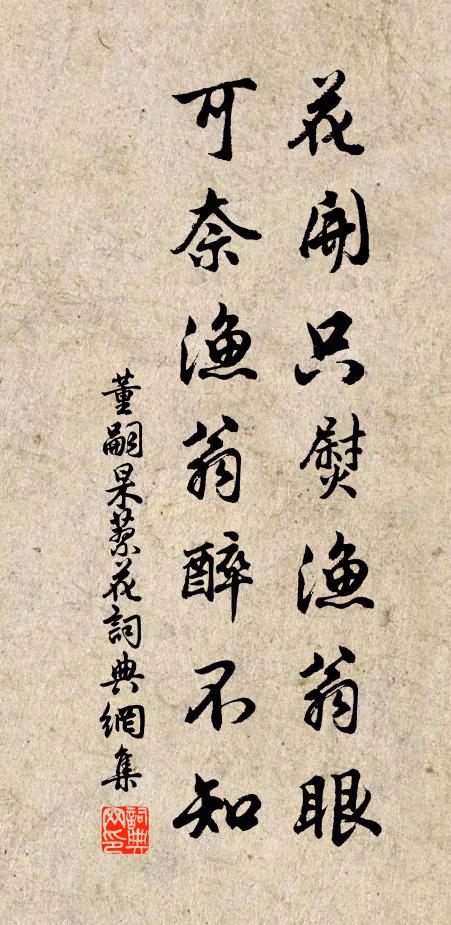 花開只熨漁翁眼
可奈漁翁醉不知
董嗣杲蓼花詞典網集
詞典網印